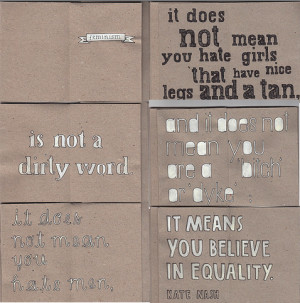 feminism
is not a
dirty word.
it does
not mean
you
hate men,
it does
not mean
you hate girls
that have nice
legs and a tan.
and it does not
mean you
are a "bitch"
or "dyke".
IT MEANS
YOU BELIEVE
IN EQUALITY.
KATE NASH